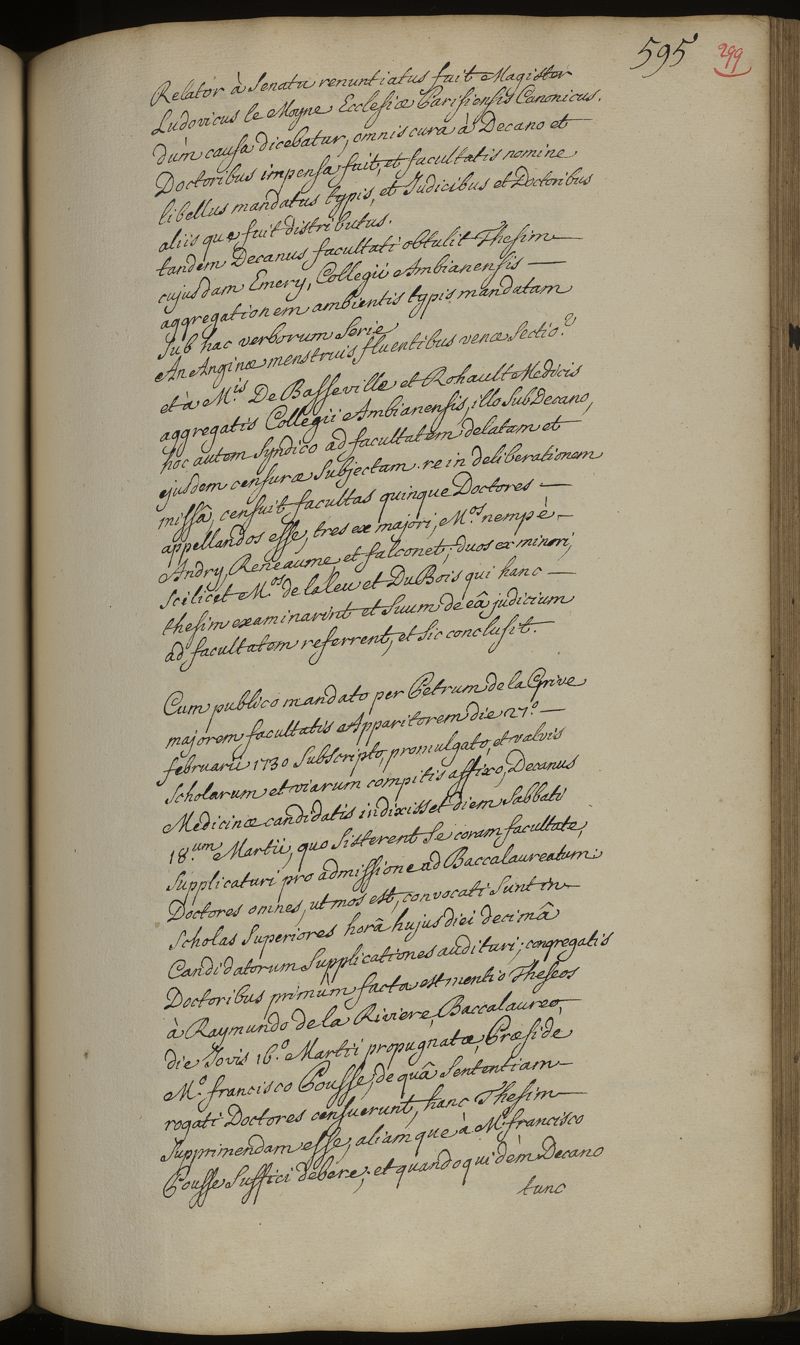 595
299
Relator à Senatu renuntiatus fuit Magister
Ludovicus le Moyne Ecclesiæ Parisiensis Canonicus.
dùm causa dicebatur, omnis cura à Decano et
Doctoribus impensa fuit, et facultatis nomine
libellus mandatus typis, et Judicibus et Doctoribus
aliisque fuit distributus.
tandem Decanus facultati obtulit Thesim —
cujusdam Emery, Collegii Ambianensis —
aggregationem ambientis typis mandatam
sub hac verborum serie
An Anginæ menstruis fluentibus venæ sectio?
et à M.is De Basseville et Rohault Medicis
aggregatis Collegii Ambianensis, illo SubDecano,
hoc autem Syndico ad facultatem delatam et
ejusdem censuræ subjectam. re in deliberationem
missâ, censuit facultas quinque Doctores —
appellandos esse, tres ex majori, M.os nempè —
Andry, Reneaume et falconet; duos ex minori,
scilicet M.os de laleu et DuBois qui hanc —
thesim examinarint et suum de eâ judicium
ad facultatem referrent, et sic conclusit.
Cum publico mandato per Petrum de la Grive
majorem facultatis Apparitorem die 27.º —
februarii 1730 subscripto, promulgato, et valvis
Scholarum et viarum compitis affixo, Decanus
Medicinæ candidatis indixisset diem Sabbati
18.um Martii, quo sisterent se coram facultate,
supplicaturi pro admissione ad Baccalaureatum:
Doctores omnes, ut mos est, convocati sunt in
Scholas superiores horâ hujus diei decimâ
Candidatorum supplicationes audituri; congregatis
Doctoribus primùm facta est mentio Theseos
à Raymundo de la Riviere Baccalaureo,
die Jovis 16.º Martii propugnatæ, Præside
M.º francisco Pousse; de quâ sententiam
rogati Doctores censuerunt, hanc Thesim
supprimendam esse, aliamque à M.º francisco
Pousse suffici debere; et quandoquidèm Decano
tunc